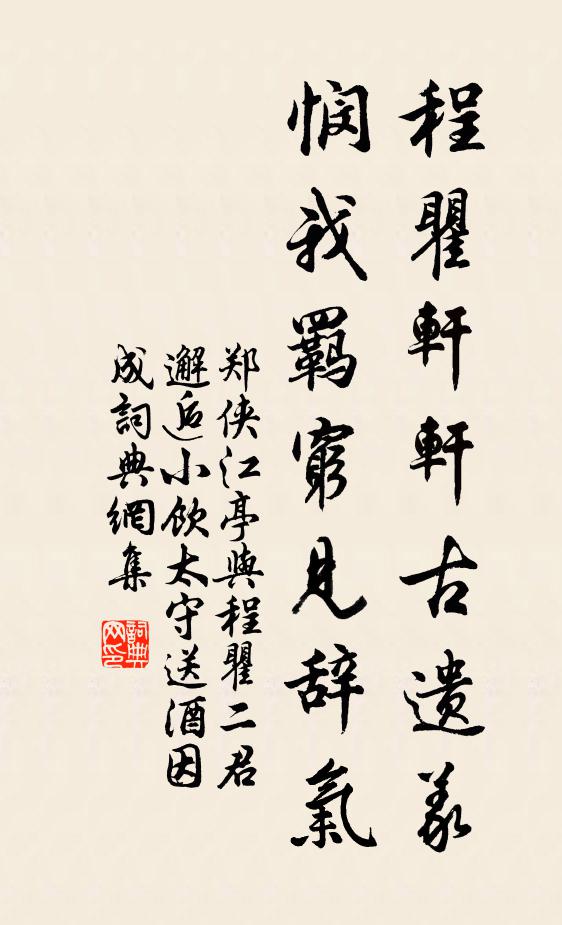 程瞿軒軒古遗義
悯我羁窮見辞氣
郑侠江亭與程瞿二君
邂逅小飲太守送酒因
成詞典網集
詞典网印